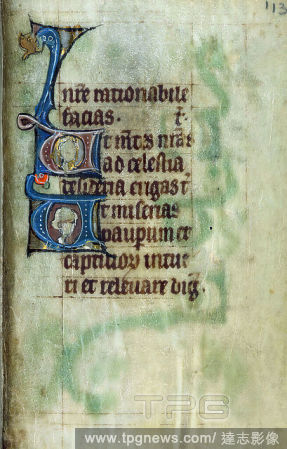 113
nr̄e rationabile
facias. t̄.
t m̄tes nr̄as
ad celestia
desideria erigas t̄.
t miserias
paupum et
captiuoꝝ intue
ri et releuare diḡ.
TPG
www.tpgnews.com/ 達志影像